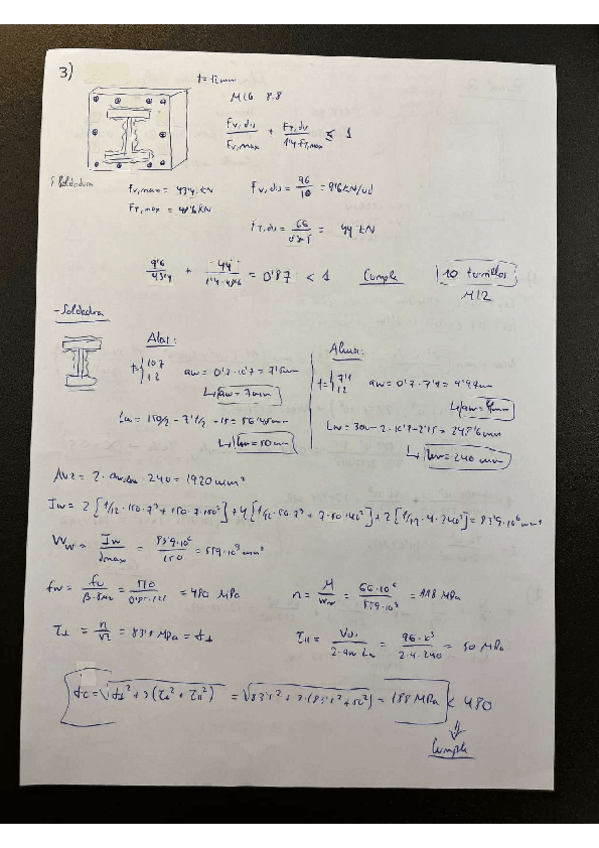 3)
t = 12mm
M16 8.8
Fv,du / Fv,max + FT,du / 1'4·FT,max ≤ 1
Fv,max = 43'4 kN
Fv,du = 96 / 10 = 9'6 kN/ud
FT,max = 48'6 kN
FT,du = 66 / = 44 kN
9'6 / 43'4 + 44 / 1'4·48'6 = 0'87 < 1 Cumple 10 tornillos
M12
- Soldadura
Alas:
t = { 10'7
12
aw = 0'7·10'7 = 7'5mm
↳ aw = 7mm
Lw = 150/2 - 7'1/2 - 15 = 56'45mm
↳ Lw = 50mm
Alma:
t = { 7'1
12
aw = 0'7·7'1 = 4'97mm
↳ aw = 4mm
Lw = 300 - 2·10'7 - 2·15 = 248'6mm
↳ Lw = 240 mm
Avz = 2·aw,alma·240 = 1920mm²
Iw = 2[1/12·150·7³ + 150·7·150²] + 4[1/12·50·7³ + 7·50·140²] + 2[1/12·4·240³] = 83'9·10⁶ mm⁴
Ww = Iw / dmax = 83'9·10⁶ / 150 = 559·10³ mm³
fw = fu / β·γM2 = = 480 MPa
n = M / Ww = 66·10⁶ / 559·10³ = 118 MPa
τ⊥ = n / √2 = 83'5 MPa = σ⊥
τ∥ = / 2·aw Lw = 96·10³ / 2·4·240 = 50 MPa
σc = √σ⊥² + 3(τ⊥² + τ∥²) = √83'5² + 3·(83'5² + 50²) = 188 MPa < 480
Cumple